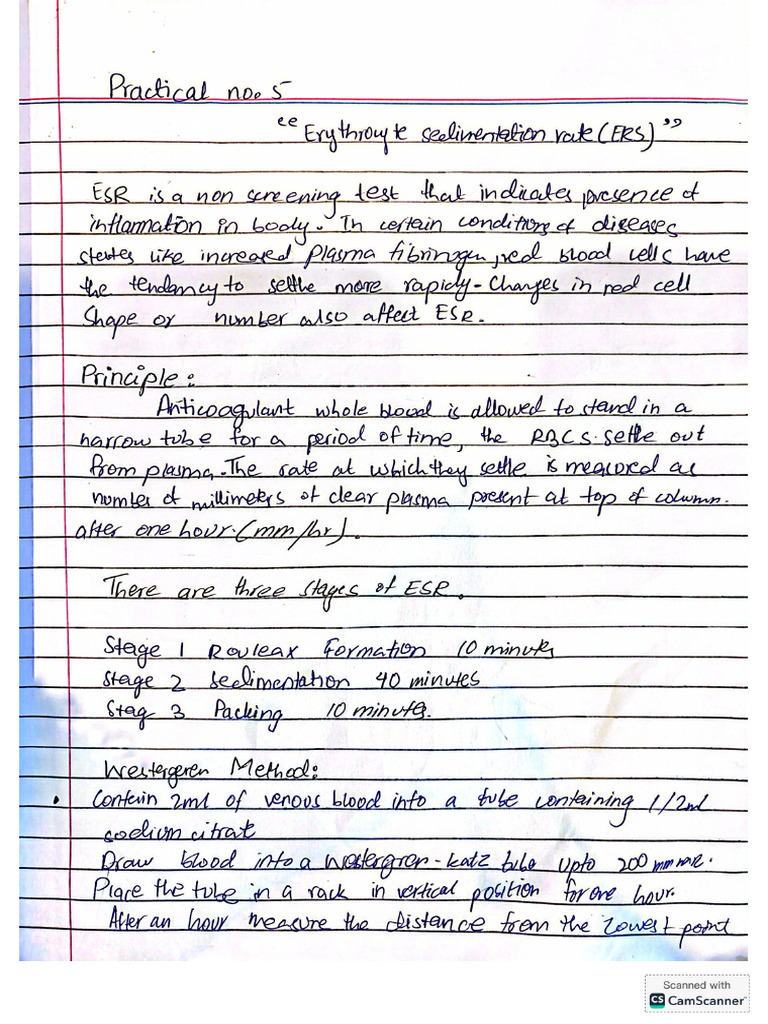 Practical no. 5
"Erythrocyte sedimentation rate (ERS)"
ESR is a non screening test that indicates presence of
inflammation in body. In certain conditions of diseases
states like increased plasma fibrinogen, red blood cells have
the tendancy to settle more rapidy - Changes in red cell
Shape or number also affect ESR.
Principle:
Anticoagulant whole blood is allowed to stand in a
narrow tube for a period of time, the RBCS. settle out
from plasma. The rate at which they settle is measured as
number of millimeters of clear plasma present at top of column.
after one hour. (mm/hr).
There are three stages of ESR.
Stage 1 Rouleax Formation 10 minutes
Stage 2 sedimentation 40 minutes
Stag 3 Packing 10 minutes.
Westergeren Method:
• Contain 2ml of venous blood into a tube containing 1/2ml
sodium citrat
Draw blood into a westergren-katz tube upto 200 mm
Place the tube in a rack in vertical position for one hour.
After an hour measure the distance from the lowest point
Scanned with
CS CamScanner